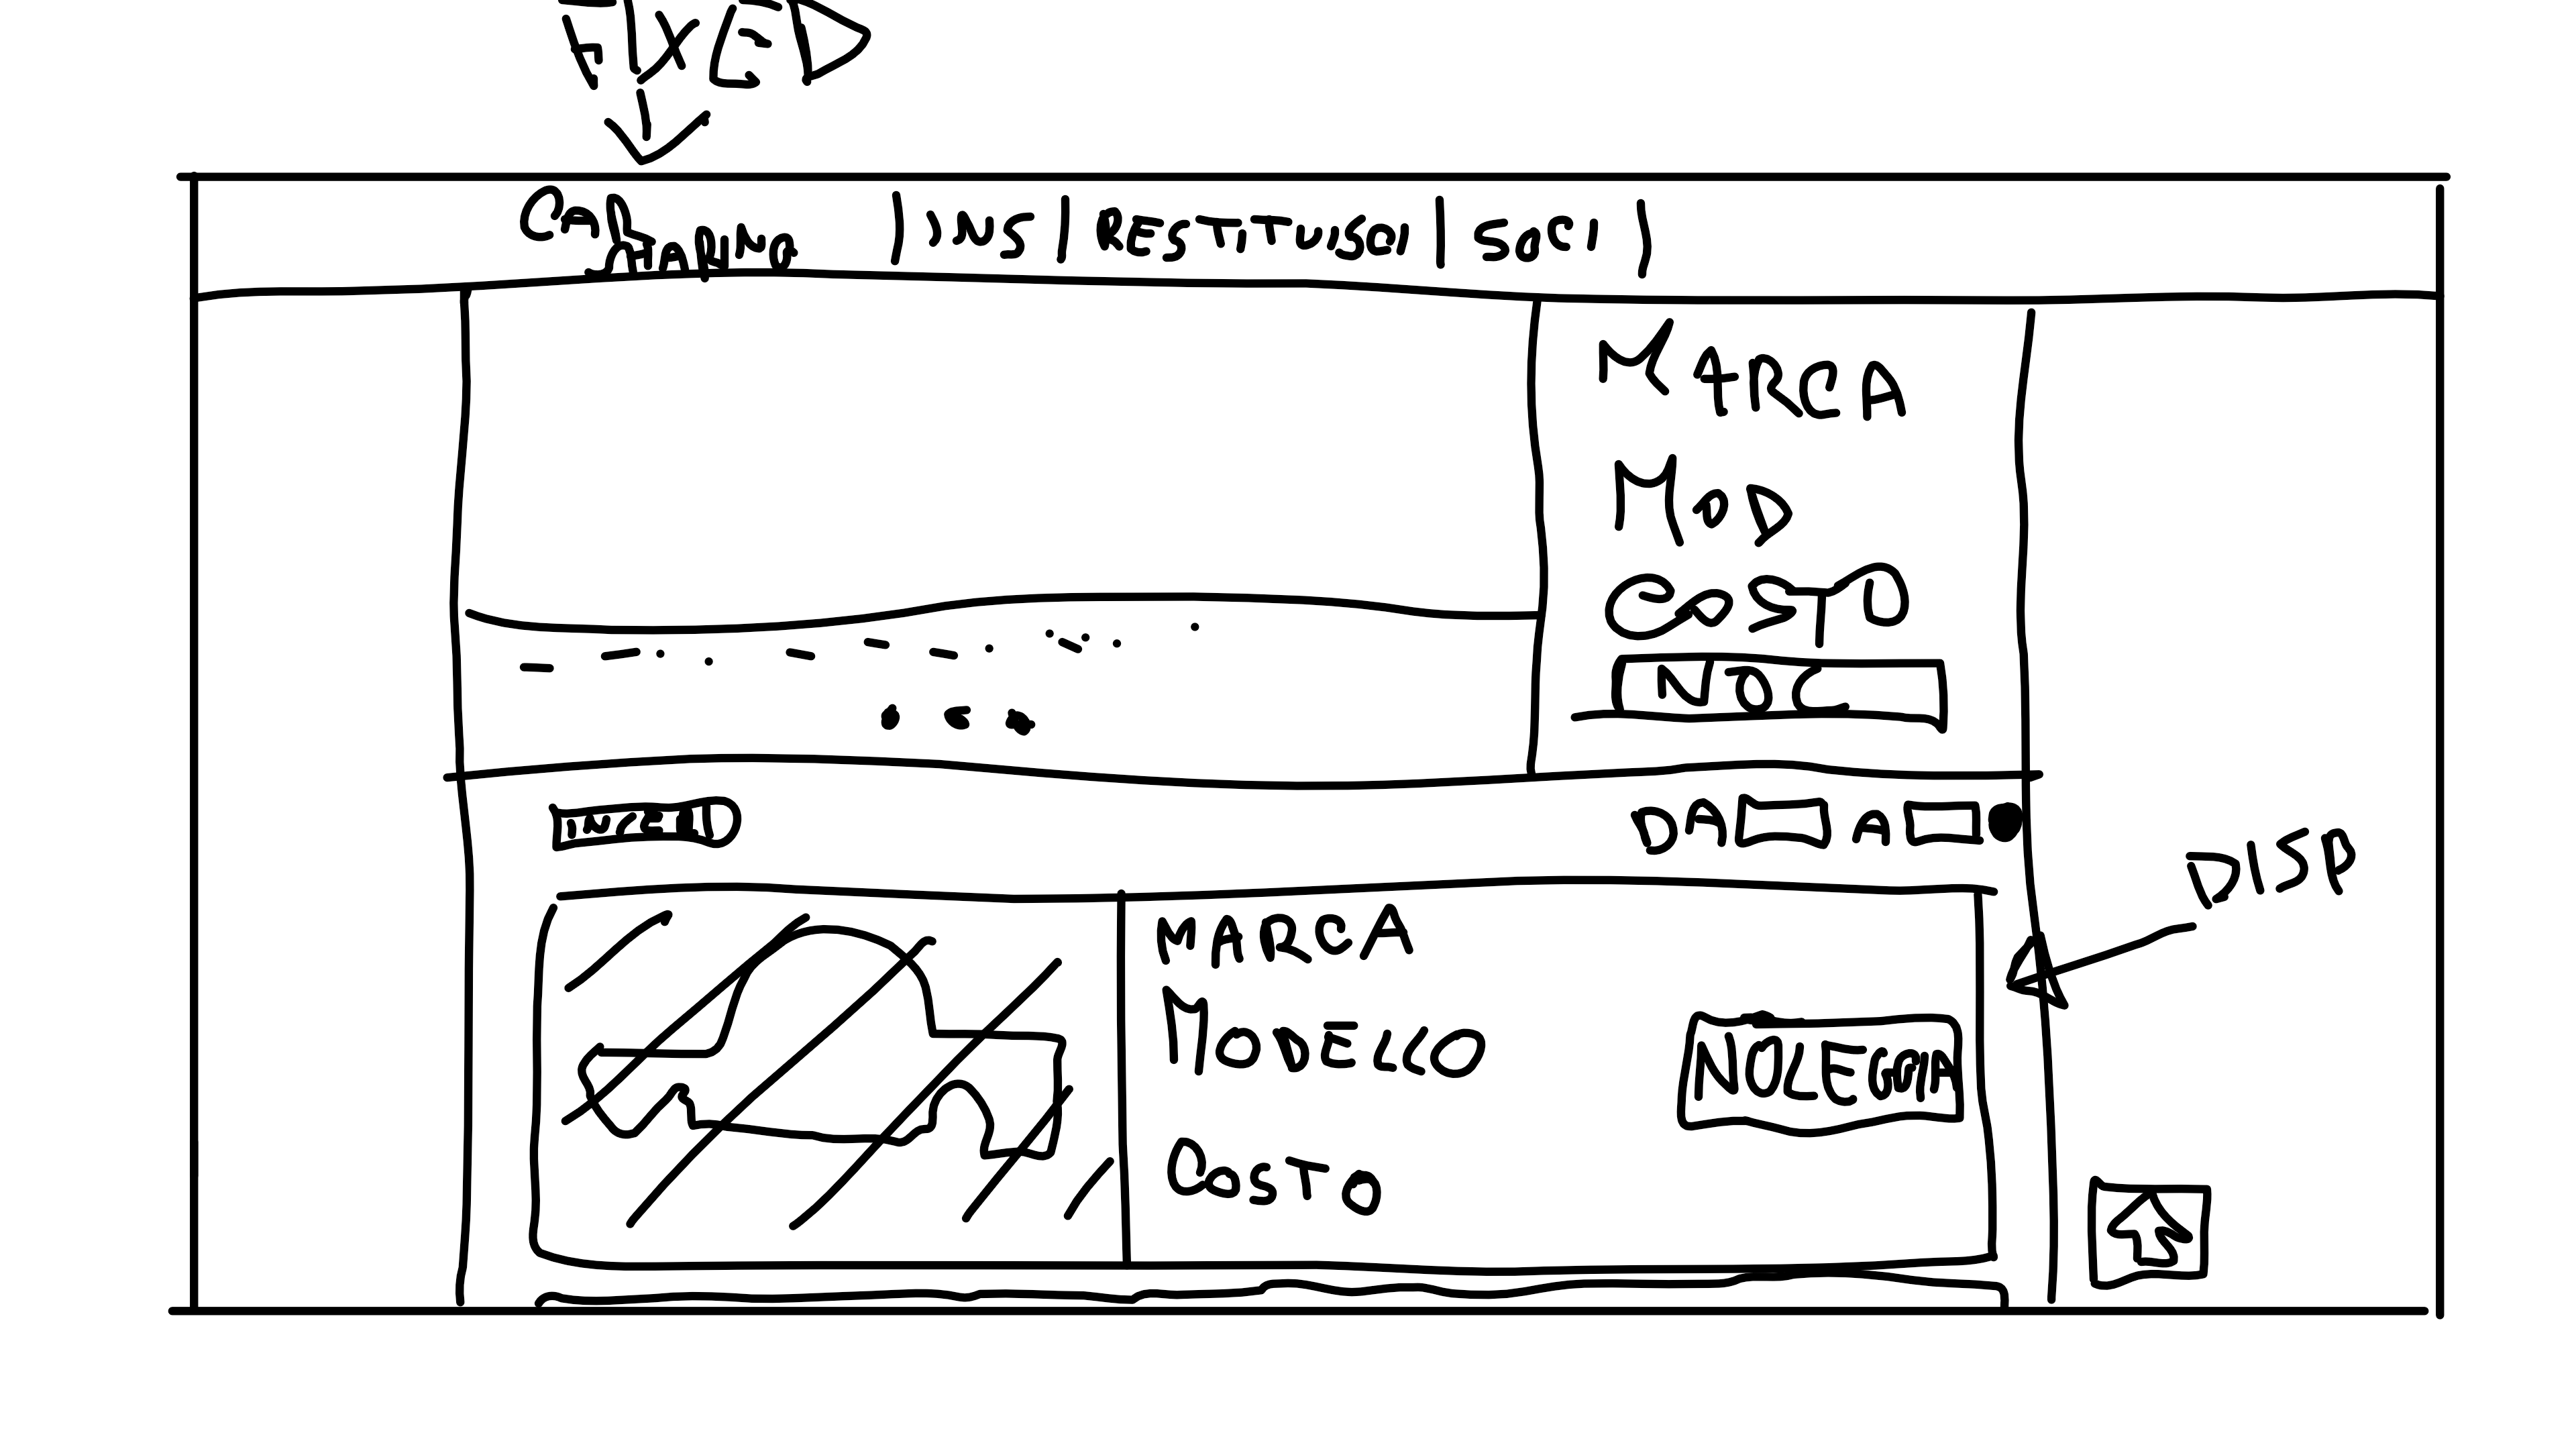 FIXED
CAR SHARING | INS | RESTITUISCI | SOCI |
MARCA
MOD
COSTO
NOL
DA A
DISP
MARCA
MODELLO
NOLEGGIA
COSTO